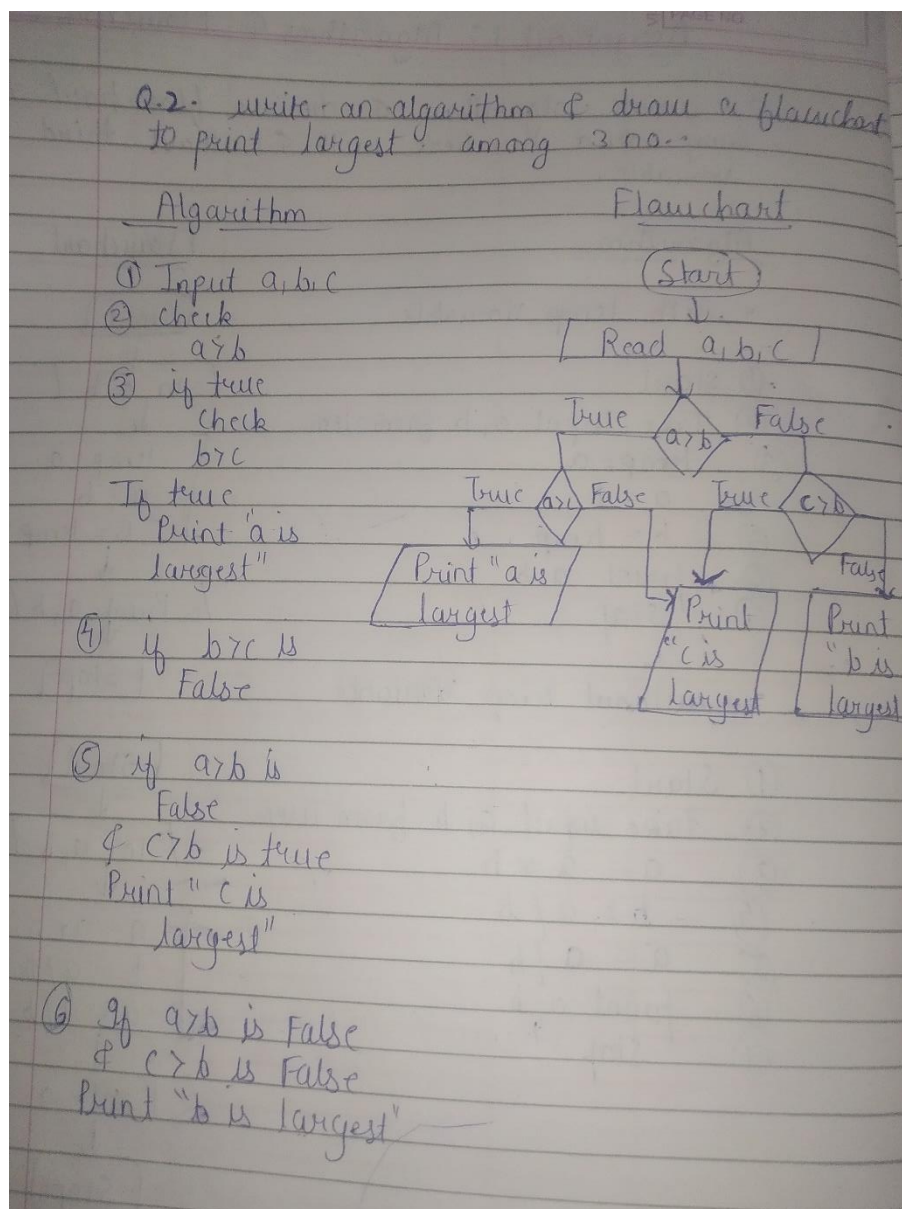 PAGE NO.
Q.2. write an algarithm & draw a flawchart
to print largest among 3 no..
Algarithm
① Input a, b, c
② check
a>b
③ if true
check
b>c
If true
Print "a is
largest"
④ if b>c is
False
⑤ if a>b is
False
& c>b is true
Print "c is
largest"
⑥ If a>b is False
& c>b is False
Print "b is largest"
Flawchart
Start
Read a, b, c
True a>b False
True a>c False
True c>b
False
Print "a is
largest
Print
"c is
largest
Print
"b is
largest